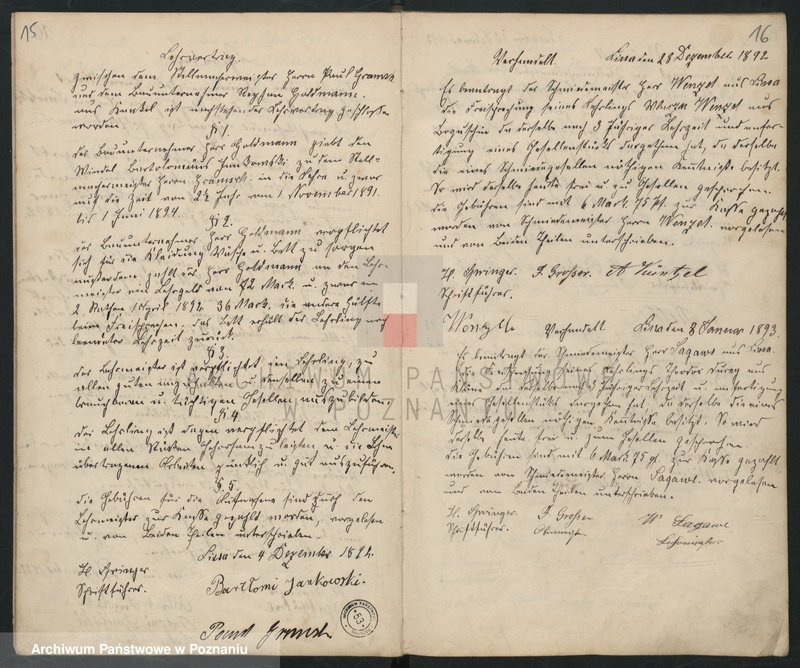 15
Lehrvertrag.
zwischen dem Stellmachermeister Herrn Paul
und dem Bauunternehmer Stephan Goldmann.
aus Kankel ist nachstehender Lehrvertrag geschlossen
worden.
§ 1.
Der Bauunternehmer Herr Goldmann giebt den
Bartolomäus Jankowski zu dem Stell-
machermeister Herrn in die Lehre u. zwar
auf die Zeit von 2½ Jahr vom 1 November 1891.
bis 1 Juni 1894.
§ 2.
Der Bauunternehmer Herr Goldmann verpflichtet
sich für die Kleidung Wäsche u. Bett zu sorgen
außerdem zahlt Herr Goldmann an den Lehr-
meister ein Lehrgeld von 72 Mark u. zwar in
2 Rathen 1 April 1892 36 Mark. die andere Hälfte
beim Freisprechen; das Bett erhält der Lehrling nach
beendeter Lehrzeit zurück.
§ 3.
Der Lehrmeister ist verpflichtet den Lehrling, zu
allen guten anzuhalten u. denselben zu einen
brauchbaren u. tüchtigen Gesellen auszubilden.
§ 4.
Der Lehrling ist dagen verpflichtet dem Lehrmeister
in allen Stücken Gehorsam zu leisten u. die Ihm
übertragenen Arbeiten pünktlich u. gut auszuführen.
§ 5.
die Gebühren für die Aufnahme sind durch den
Lehrmeister zur Kasse gezahlt worden, vorgelesen
u. von beiden Theilen unterschrieben.
Lissa den 4 Dezember 1892.
H. Springer
Schriftführer.
Bartłomi Jankowski.
Paul
53
16
Verhandelt. Lissa den 28 Dezember 1892
Es beantragt der Schmiedemeister Herr Wenzel aus Lissa
die Freisprechung seines Lehrlings Wenzel aus
da derselbe nach 3 Jähriger Lehrzeit und anfer-
tigung eines Gesellenstücks dargethan hat, da derselbe
die eines Schmiedegesellen nöthigen Kenntniße besitzt.
So wird derselbe heute frei u. zu Gesellen gesprochen.
die Gebühren sind mit 6 Mark. 75 Pf. zur Kasse gezahlt
worden von Schmiedemeister Herrn Wenzel. vorgelesen
und von beiden Theilen unterschrieben.
H. Springer. F. Großer. A Küntzel
Schriftführer.
Verhandelt. Lissa den 8 Januar 1893.
Es beantragt der Schmiedemeister Herr Sagawe aus Lissa.
die Freisprechung seines Lehrlings Theodor aus
da derselbe nach 3 Jähriger Lehrzeit u. anfertigung
eines Gesellenstücks dargethan hat, da derselbe die eines
Schmiedegesellen nöthigen Kentniße besitzt. So wird
derselbe heute frei u. zum Gesellen gesprochen.
die Gebühren sind mit 6 Mark 75 pf. zur Kasse gezahlt
worden von Schmiedemeister Herrn Sagawe. vorgelesen
und von beiden Theilen unterschrieben.
H. Springer. F. Großer W Sagawe
Schriftführer. Obermeister
ARCHIWUM PAŃSTWOWE
W POZNANIU
Archiwum Państwowe w Poznaniu